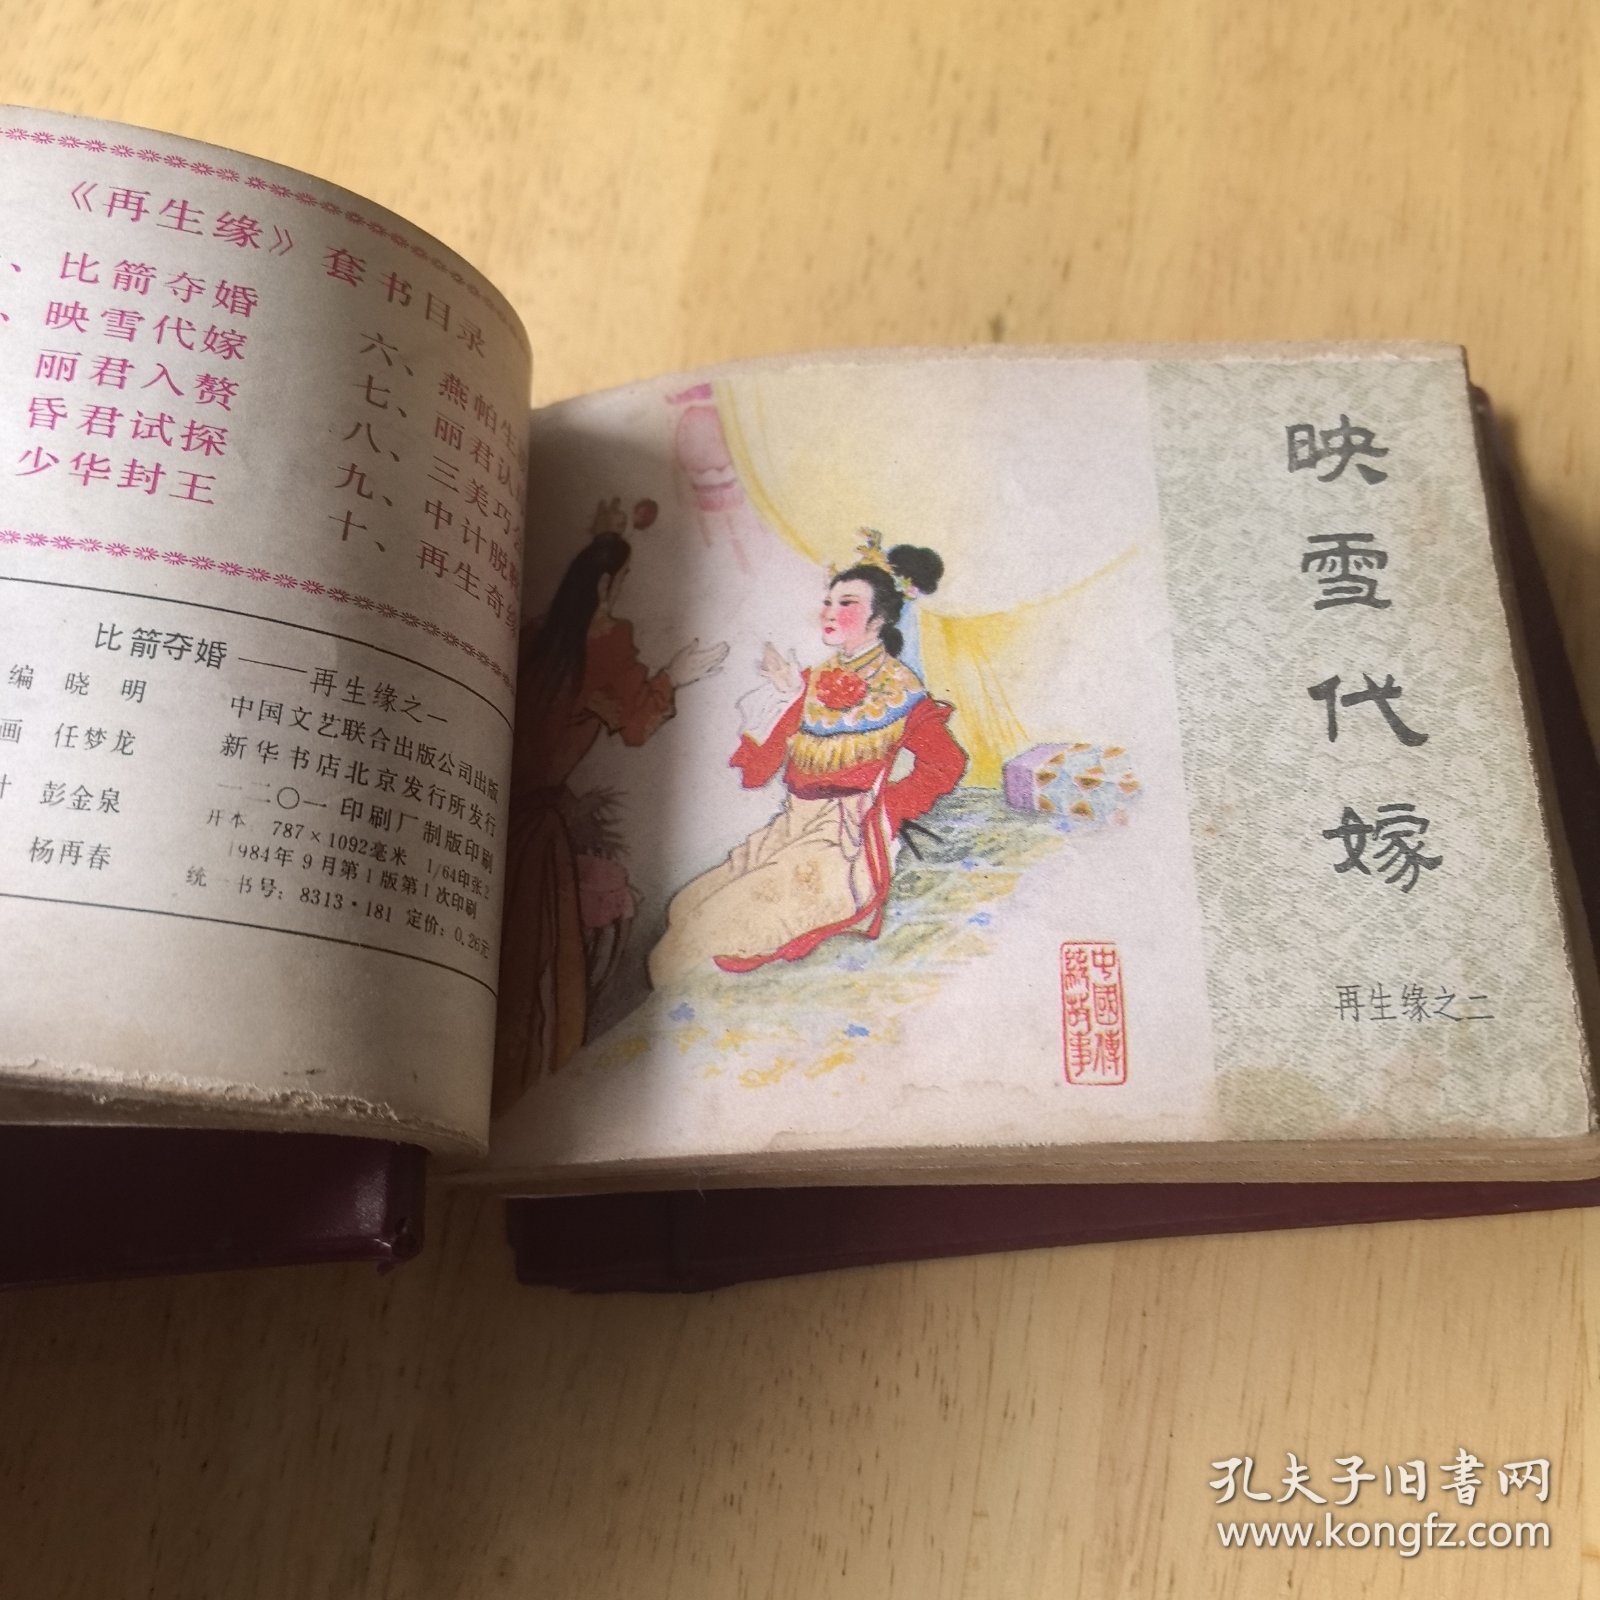 《再生缘》套书目录
、比箭夺婚
、映雪代嫁
丽君入赘
昏君试探
少华封王
六、燕帕生
七、丽君认
八、三美巧
九、中计脱
十、再生奇缘
比箭夺婚——再生缘之一
编 晓 明
画 任梦龙
计 彭金泉
杨再春
中国文艺联合出版公司出版
新华书店北京发行所发行
一二〇一印刷厂制版印刷
开本 787×1092毫米 1/64印张2
1984年9月第1版第1次印刷
统一书号：8313·181 定价：0.26元
映雪代嫁
再生缘之二
中國傳
故事
孔夫子旧书网
www.kongfz.com